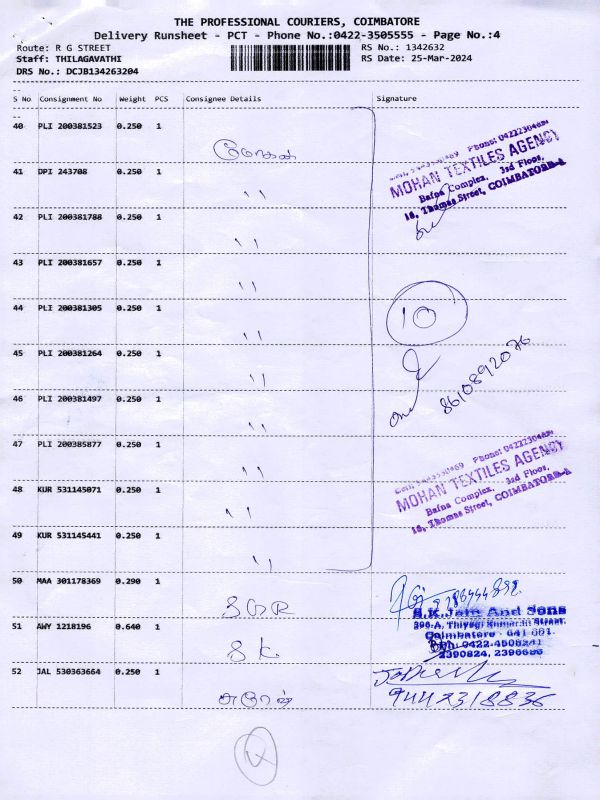 THE PROFESSIONAL COURIERS, COIMBATORE
Delivery Runsheet - PCT - Phone No.:0422-3505555 - Page No.:4
Route: R G STREET
RS No.: 1342632
Staff: THILAGAVATHI
RS Date: 25-Mar-2024
DRS No.: DCJB134263204
S No Consignment No Weight PCS Consignee Details Signature
40 PLI 200381523 0.250 1
41 DPI 243708 0.250 1 ,,
42 PLI 200381788 0.250 1 ,,
43 PLI 200381657 0.250 1 ,,
44 PLI 200381305 0.250 1 ,,
45 PLI 200381264 0.250 1 ,,
46 PLI 200381497 0.250 1 ,,
47 PLI 200385877 0.250 1 ,,
48 KUR 531145071 0.250 1 ,,
49 KUR 531145441 0.250 1 ,,
50 MAA 301178369 0.290 1
51 AWY 1218196 0.640 1 S K
52 JAL 530363664 0.250 1
MOHAN TEXTILES AGENCY
Bafna Complex, 3rd Floor,
16, Thomas Street, COIMBATORE-1
10
8610892076
MOHAN TEXTILES AGENCY
Bafna Complex, 3rd Floor,
16, Thomas Street, COIMBATORE-1
S.K.Jain And Sons
Coimbatore - 641 001.
2390824, 2396686
9442318836